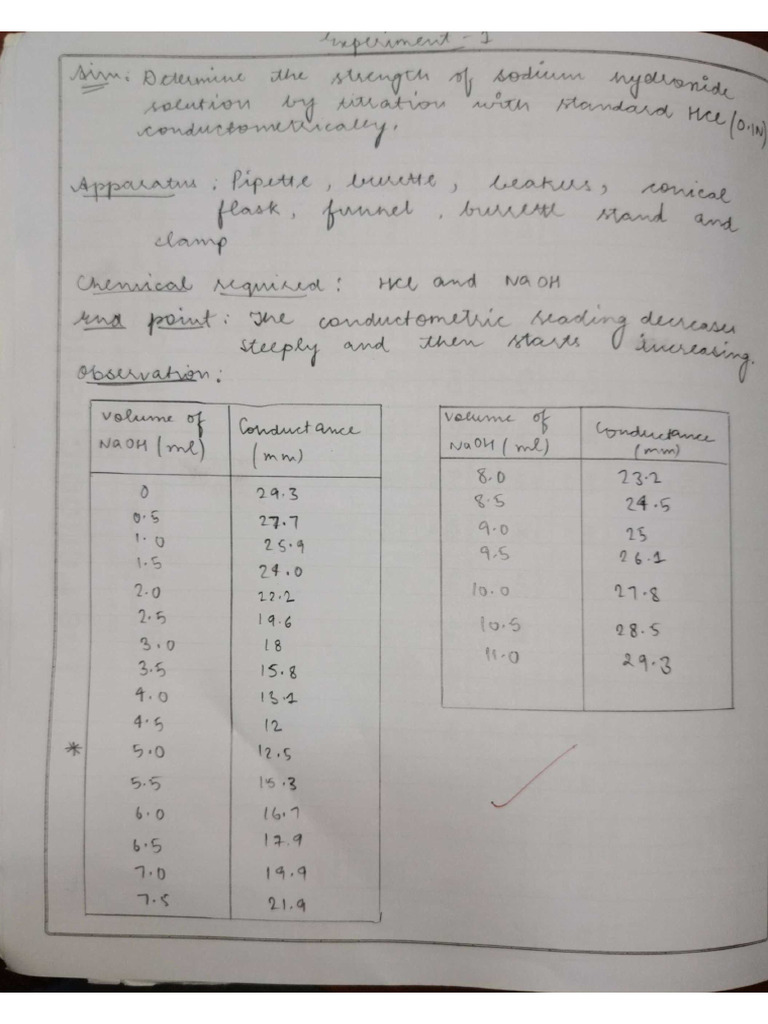 Experiment - 1
Aim: Determine the strength of sodium hydroxide
solution by titration with standard HCl (0.1N)
conductometrically.
Apparatus: Pipette, burette, beakers, conical
flask, funnel, burette stand and
clamp
Chemical required: HCl and NaOH
End point: The conductometric reading decreases
steeply and then starts increasing.
Observation:
Volume of NaOH (ml) Conductance (mm)
0 29.3
0.5 27.7
1.0 25.9
1.5 24.0
2.0 22.2
2.5 19.6
3.0 18
3.5 15.8
4.0 13.1
4.5 12
* 5.0 12.5
5.5 15.3
6.0 16.7
6.5 17.9
7.0 19.9
7.5 21.9
Volume of NaOH (ml) Conductance (mm)
8.0 23.2
8.5 24.5
9.0 25
9.5 26.1
10.0 27.8
10.5 28.5
11.0 29.3